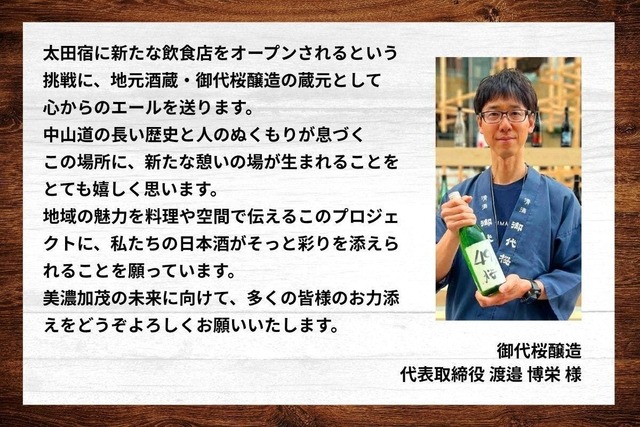 太田宿に新たな飲食店をオープンされるという
挑戦に、地元酒蔵・御代桜醸造の蔵元として
心からのエールを送ります。
中山道の長い歴史と人のぬくもりが息づく
この場所に、新たな憩いの場が生まれることを
とても嬉しく思います。
地域の魅力を料理や空間で伝えるこのプロジェ
クトに、私たちの日本酒がそっと彩りを添えら
れることを願っています。
美濃加茂の未来に向けて、多くの皆様のお力添
えをどうぞよろしくお願いいたします。
御代桜
御代桜醸造
代表取締役 渡邉 博栄 様